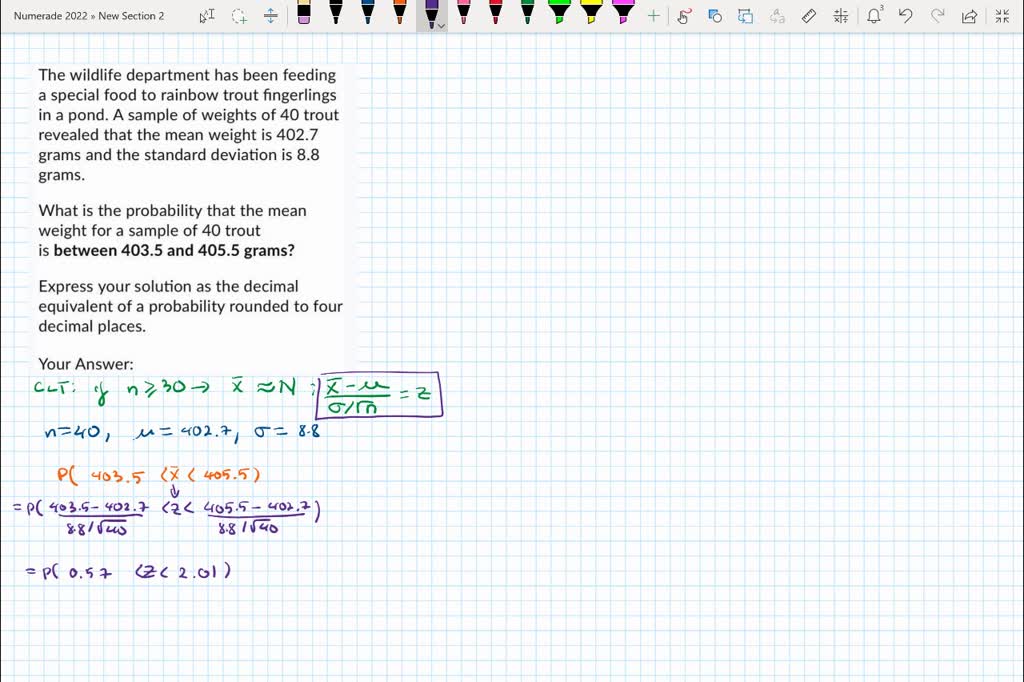 Numerade 2022 » New Section 2
3
The wildlife department has been feeding
a special food to rainbow trout fingerlings
in a pond. A sample of weights of 40 trout
revealed that the mean weight is 402.7
grams and the standard deviation is 8.8
grams.
What is the probability that the mean
weight for a sample of 40 trout
is between 403.5 and 405.5 grams?
Express your solution as the decimal
equivalent of a probability rounded to four
decimal places.
Your Answer:
CLT: if n ≥ 30 → x̄ ≈ N ; (x̄ - μ)/(σ/√n) = z
n=40, μ = 402.7, σ = 8.8
P( 403.5 < x̄ < 405.5 )
= P( (403.5 - 402.7)/(8.8/√40) < z < (405.5 - 402.7)/(8.8/√40) )
= P( 0.57 < z < 2.01 )